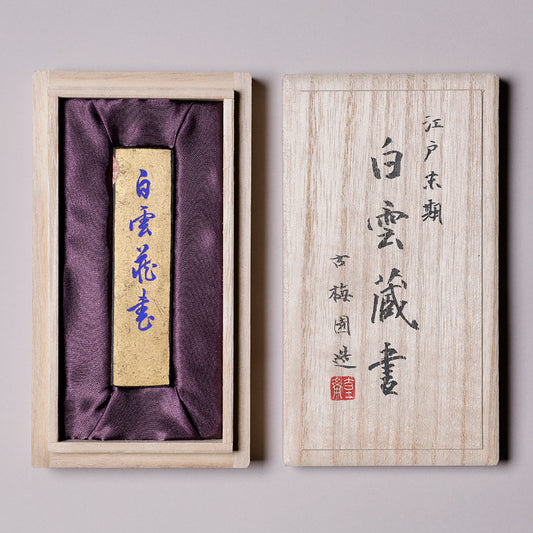 白雲蔵書
江戸末期
白雲蔵書
古梅園造